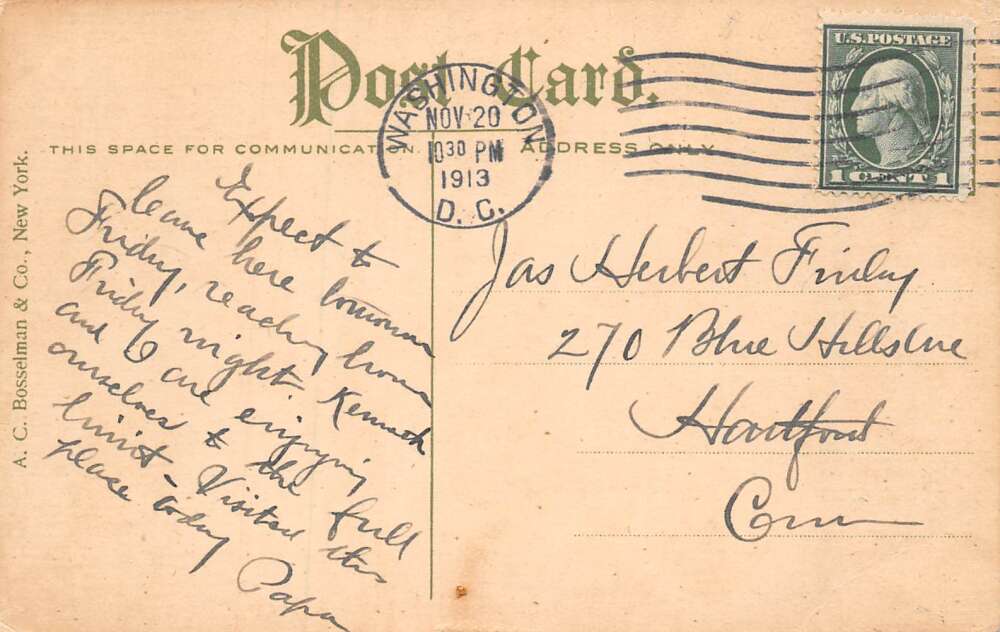 Post Card.
THIS SPACE FOR COMMUNICATION.
ADDRESS ONLY.
A. C. Bosselman & Co., New York.
WASHINGTON
NOV 20
10 30 PM
1913
D. C.
U.S. POSTAGE
1 CENT 1
Expect to
leave here tomorrow
Friday, reaching home
Friday night. Kenneth
and I are enjoying
ourselves to the full
limit - Visited this
place today
Papa
Jas Herbert Finlay
270 Blue Hills Ave
Hartford
Conn